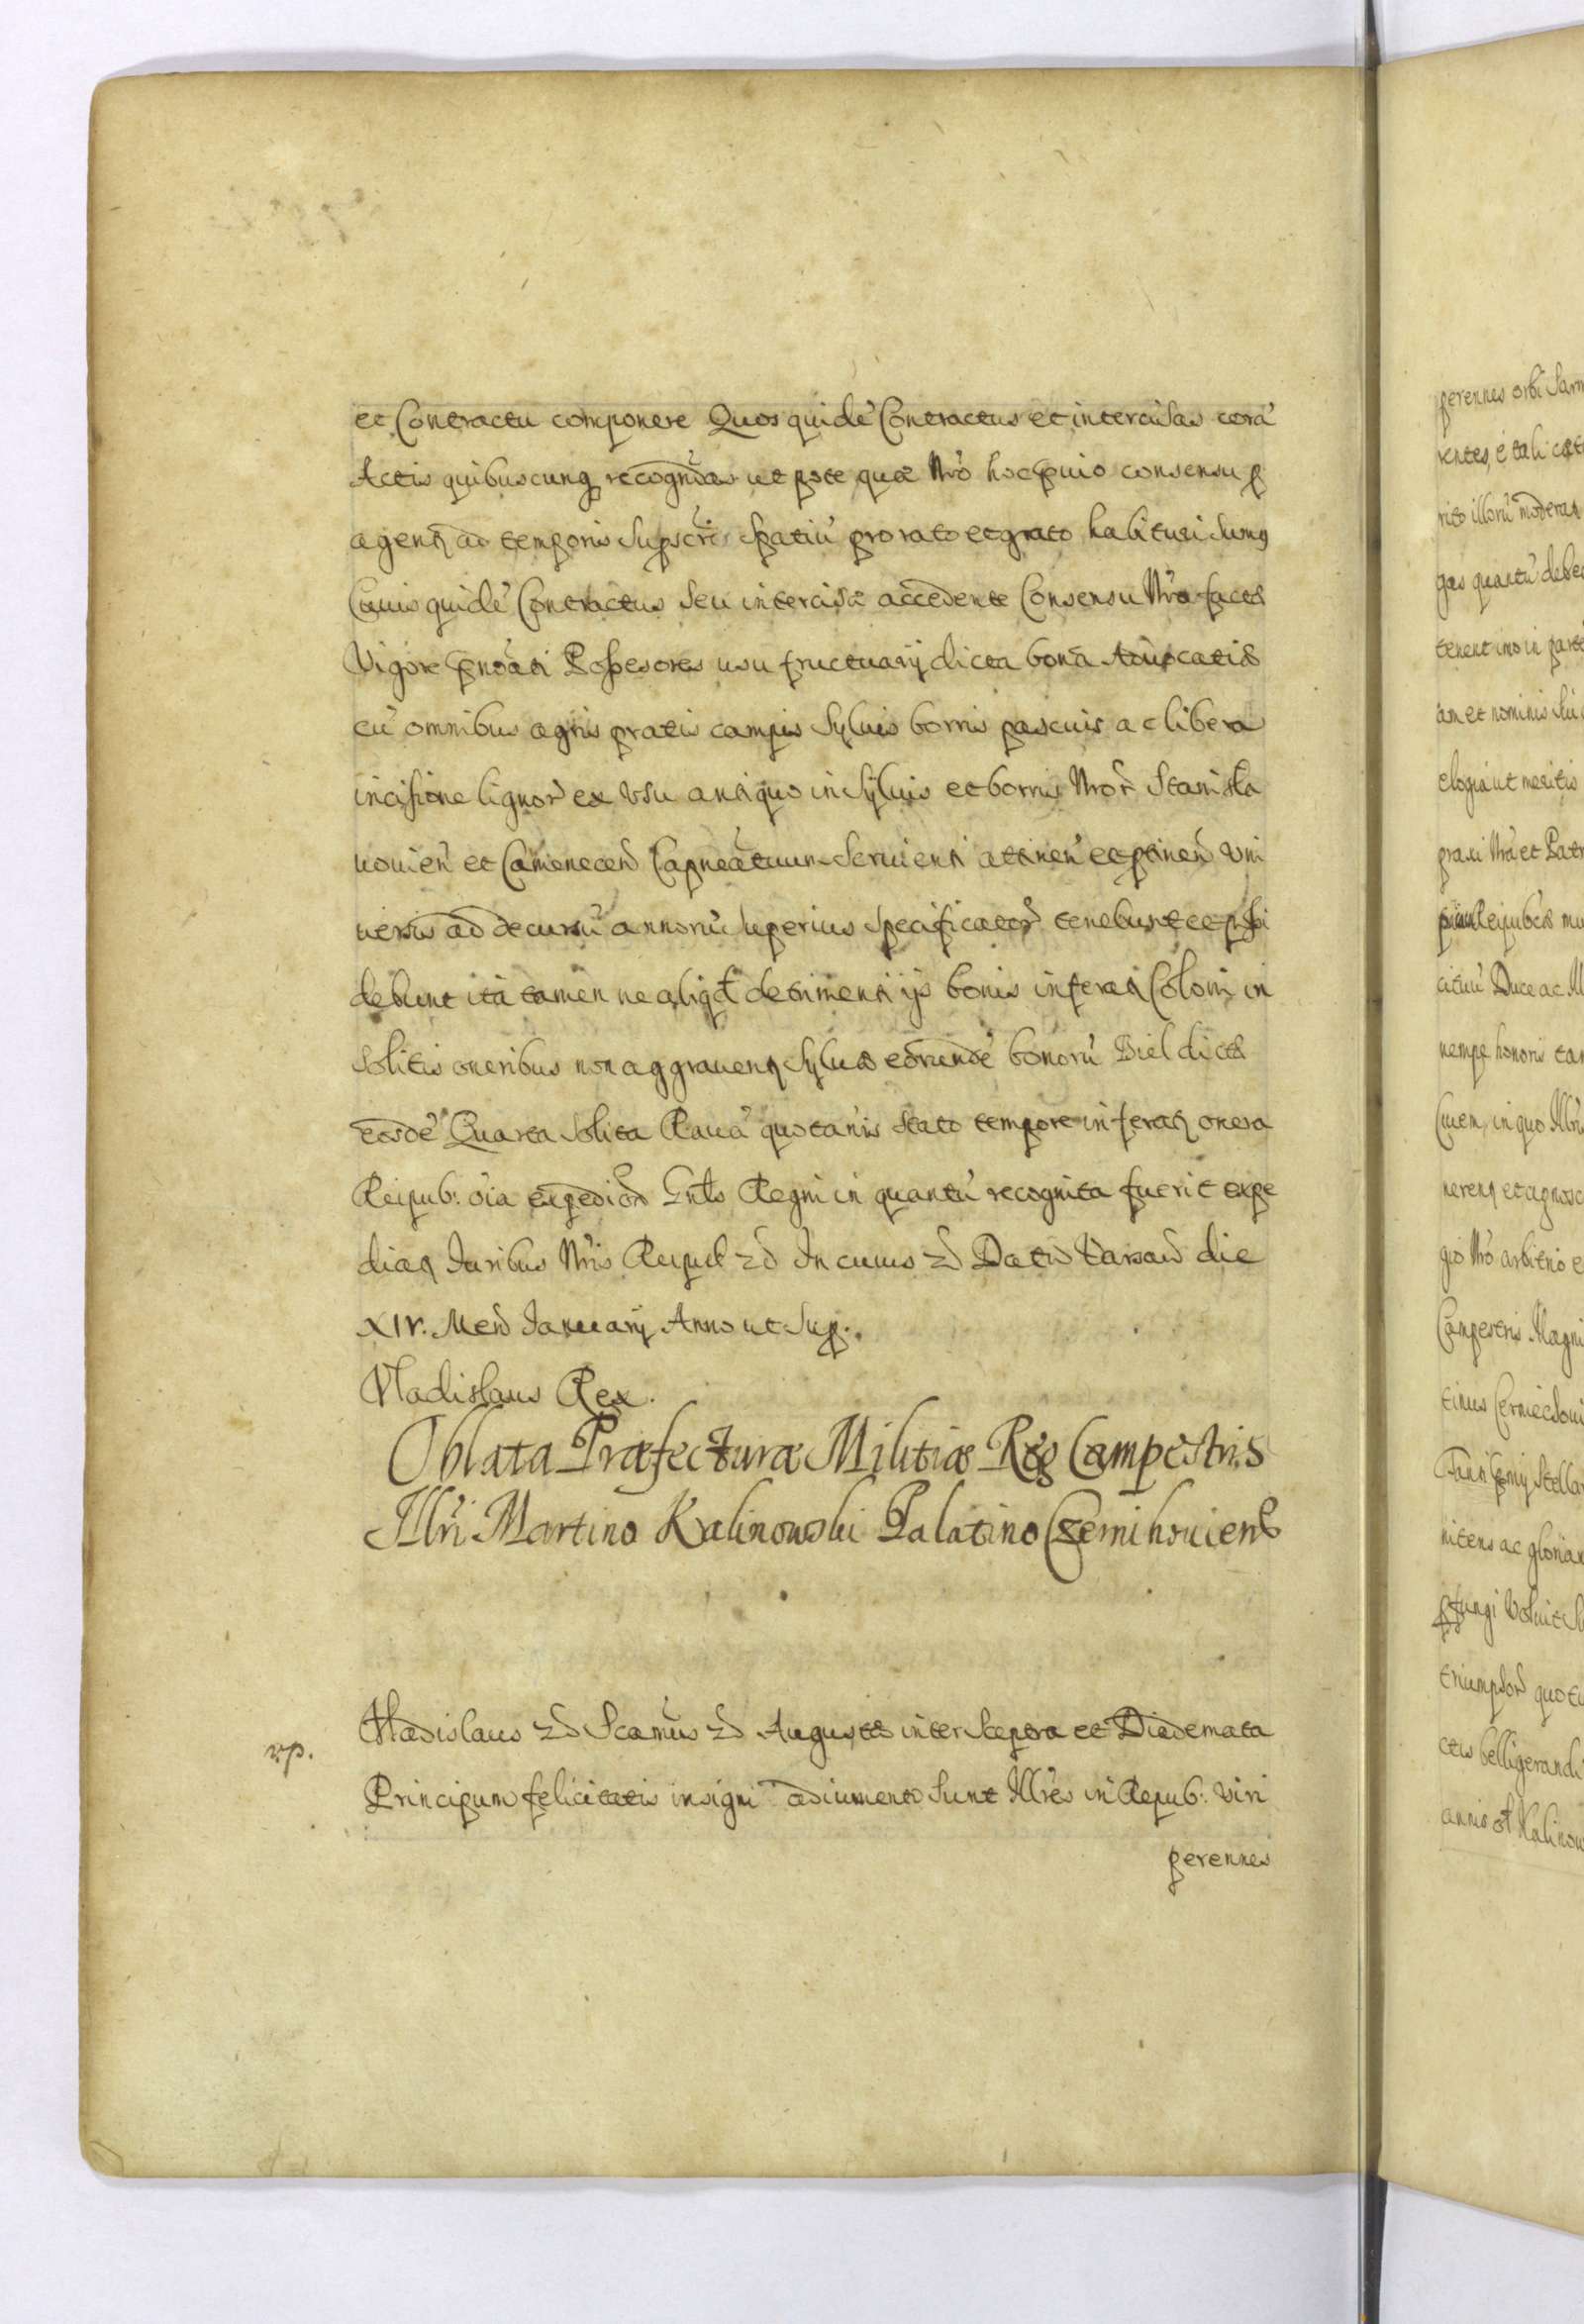 et Contractu componere Quos quidē Contractus et intercisas corā
Actis quibuscunq recognōas ut pote quæ Nrō hoc consensu p
agentq ad temporis supscrī spatiū pro rato et grato habituri sumq
Cuius quidē Contractus seu intercisæ accedente Consensu Nrō factæ
Vigore pnōati Possesores usu fructuarij dicta bona Aduocatiæ
cū omnibus agris pratis campis Syluis borris pascuis ac libera
incisione lignor ex vsu antiquo in Syluis et borris Nror Stanisła
uouien et Camenecen Capneātuum seruienti attinen et ptinen vni
uersis ad decursū annorū superius specificator tenebunt et pssi
debunt ita tamen ne aliqd detrimenti ijs bonis inferat Coloni in
solitis oneribus non aggrauentq Syluæ eorundē bonorū
eosdē Quarta solita Rauā quotānis stato tempore inferatq onera
Reipub: oīa expediōd Gnlis Regni in quantū recognita fuerit expe
diatq Iuribus Nrīs Reipub In cuius Datū Varsaū die
XIV. Mens Ianuarij Anno ut Sup:.
Vladislaus Rex.
Oblata Præfecturæ Militiæ Reg Campestris
Illri Martino Kalinowski Palatino Czernihouiens
vp.
Vladislaus Scamūs Augustæ inter Sceptra et Diademata
Principum felicitatis insigni adiumento sunt Illres in Repub: viri
perennes
perennes orbi Sarm
rentes, è tali cæt
rito illorū moderat
gas quantū debea
tenent imo in part
an et nominis sui
elogia ut meritis
praxi Nra et Patr
citūū Duce ac Ill
nempe honoris tan
Ciuem, in quo Illri
nerentq et agnosc
gio Nrō arbitrio e
Campestris Magni
tinus Cerniechoui
nitens ac glorian
fungi voluit
triumphor quot
ctis belligerandi
annis Kalinow